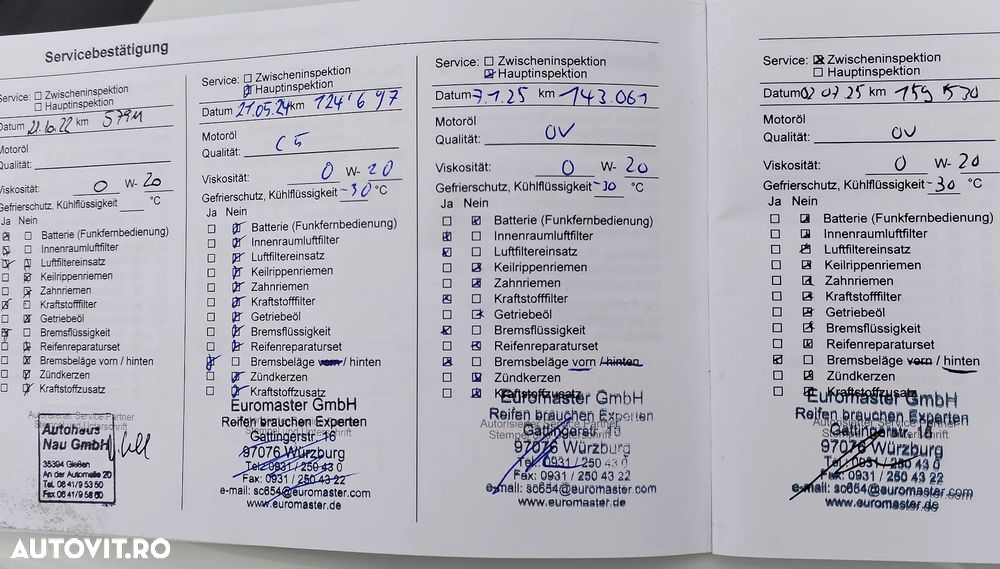 Servicebestätigung
Service: Zwischeninspektion
Hauptinspektion
Datum 21.10.22 km
Motoröl
Qualität:
Viskosität: 0 W- 20
Gefrierschutz, Kühlflüssigkeit °C
Ja Nein
Batterie (Funkfernbedienung)
Innenraumluftfilter
Luftfiltereinsatz
Keilrippenriemen
Zahnriemen
Kraftstofffilter
Getriebeöl
Bremsflüssigkeit
Reifenreparaturset
Bremsbeläge vorn / hinten
Zündkerzen
Kraftstoffzusatz
Autorisierter Service Partner
Stempel und Unterschrift
Autohaus
Nau GmbH
35394 Gießen
An der Automeile 20
Tel. 06 41/9 53 50
Fax 06 41/9 58 60
Service: Zwischeninspektion
Hauptinspektion
Datum 21.05.24 km 124'697
Motoröl
Qualität: C5
Viskosität: 0 W- 20
Gefrierschutz, Kühlflüssigkeit -30 °C
Ja Nein
Batterie (Funkfernbedienung)
Innenraumluftfilter
Luftfiltereinsatz
Keilrippenriemen
Zahnriemen
Kraftstofffilter
Getriebeöl
Bremsflüssigkeit
Reifenreparaturset
Bremsbeläge vorn / hinten
Zündkerzen
Kraftstoffzusatz
Euromaster GmbH
Reifen brauchen Experten
Gattingerstr. 16
97076 Würzburg
Tel.: 0931 / 250 43 0
Fax: 0931 / 250 43 22
e-mail: sc654@euromaster.com
www.euromaster.de
Service: Zwischeninspektion
Hauptinspektion
Datum 7.1.25 km 143.061
Motoröl
Qualität: OV
Viskosität: 0 W- 20
Gefrierschutz, Kühlflüssigkeit -30 °C
Ja Nein
Batterie (Funkfernbedienung)
Innenraumluftfilter
Luftfiltereinsatz
Keilrippenriemen
Zahnriemen
Kraftstofffilter
Getriebeöl
Bremsflüssigkeit
Reifenreparaturset
Bremsbeläge vorn / hinten
Zündkerzen
Kraftstoffzusatz
Euromaster GmbH
Reifen brauchen Experten
Autorisierter Service Partner
Gattingerstr. 16
97076 Würzburg
Tel.: 0931 / 250 43 0
Fax: 0931 / 250 43 22
e-mail: sc654@euromaster.com
www.euromaster.de
Service: Zwischeninspektion
Hauptinspektion
Datum 02 07.25 km 159 530
Motoröl
Qualität: OV
Viskosität: 0 W- 20
Gefrierschutz, Kühlflüssigkeit -30 °C
Ja Nein
Batterie (Funkfernbedienung)
Innenraumluftfilter
Luftfiltereinsatz
Keilrippenriemen
Zahnriemen
Kraftstofffilter
Getriebeöl
Bremsflüssigkeit
Reifenreparaturset
Bremsbeläge vorn / hinten
Zündkerzen
Kraftstoffzusatz
Euromaster GmbH
Reifen brauchen Experten
Autorisierter Service Partner
Gattingerstr. 16
97076 Würzburg
Tel.: 0931 / 250 43 0
Fax: 0931 / 250 43 22
e-mail: sc654@euromaster.com
www.euromaster.de
AUTOVIT.RO